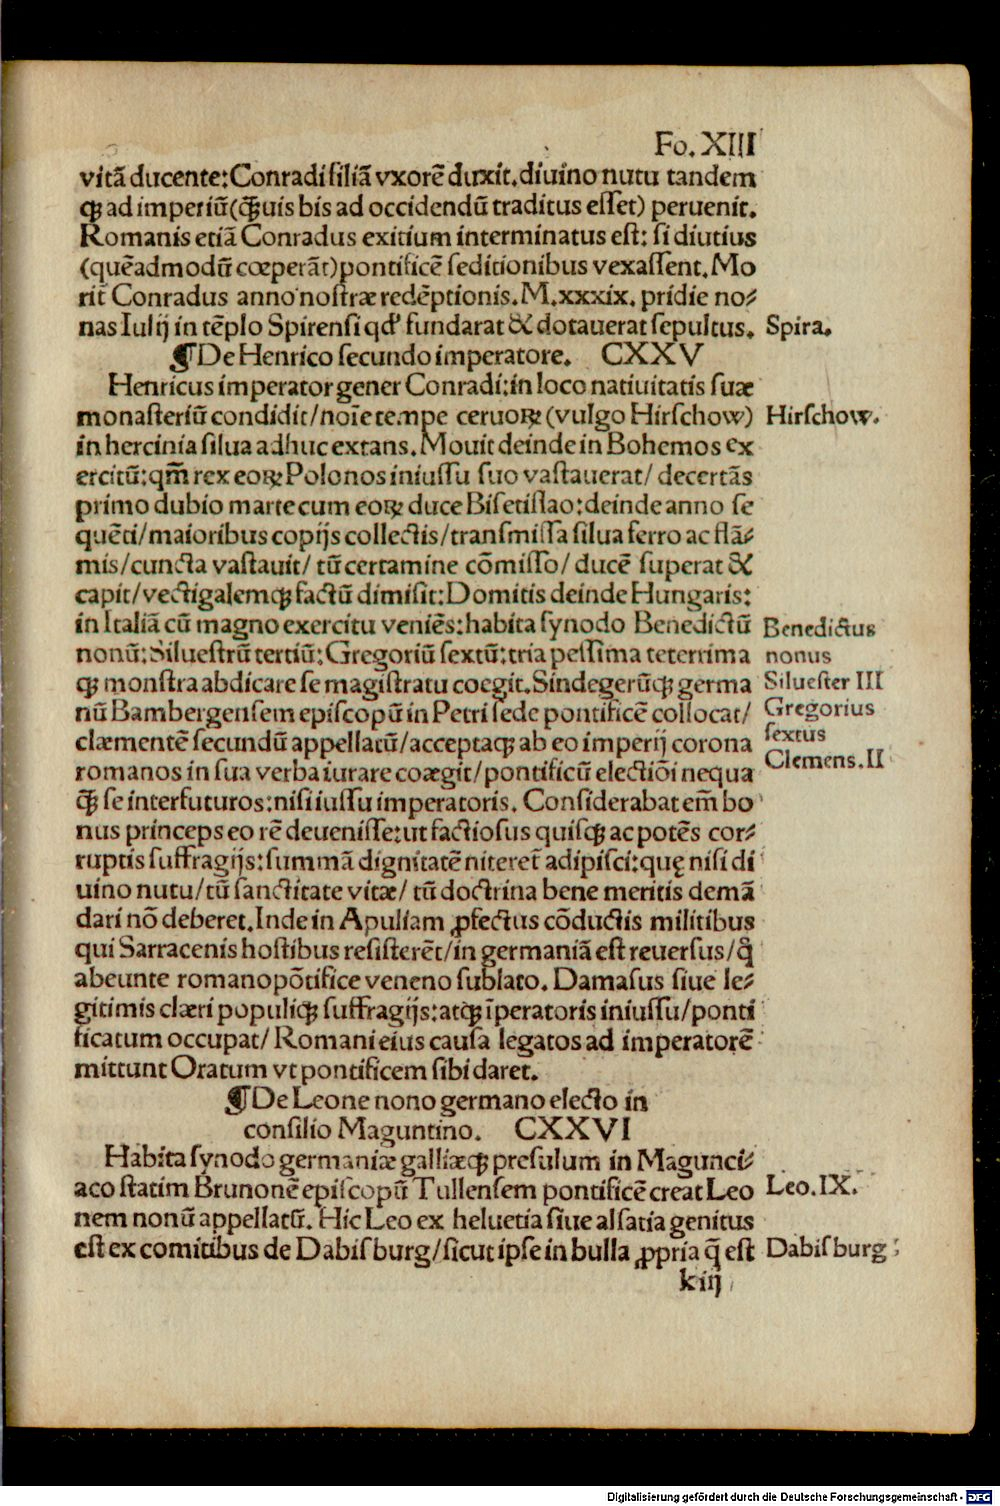 Fo. XIII
vitā ducente: Conradi filiā vxorē duxit. diuino nutu tandem
qꝫ ad imperiū (qꝫ̄uis bis ad occidendū traditus eſſet) peruenit.
Romanis etiā Conradus exitium interminatus eſt: ſi diutius
(quēadmodū cœperāt) pontificē ſeditionibus vexaſſent. Mo
rit̄ Conradus anno noſtræ redēptionis. M.xxxix. pridie no⸗
nas Iulij in tēplo Spirenſi qd' fundarat & dotauerat ſepultus. Spira.
¶ De Henrico ſecundo imperatore. CXXV
Henricus imperator gener Conradi: in loco natiuitatis ſuæ
monaſteriū condidit/ noīe tempe ceruoꝝ (vulgo Hirſchow) Hirſchow.
in hercinia ſilua adhuc extans. Mouit deinde in Bohemos ex
ercitū: qm̄ rex eoꝝ Polonos iniuſſu ſuo vaſtauerat/ decertās
primo dubio marte cum eoꝝ duce Biſetiſlao: deinde anno ſe
quēti/ maioribus copijs collectis/ tranſmiſſa ſilua ferro ac flā⸗
mis/ cuncta vaſtauit/ tū certamine cōmiſſo/ ducē ſuperat &
capit/ vectigalemqꝫ factū dimiſit: Domitis deinde Hungaris:
in Italiā cū magno exercitu veniēs: habita ſynodo Benedictū Benedictus
nonū: Silueſtrū tertiū: Gregoriū ſextū: tria peſſima teterrima nonus
qꝫ monſtra abdicare ſe magiſtratu coegit. Sindegerūqꝫ germa Silueſter III
nū Bambergenſem epiſcopū in Petri ſede pontificē collocat/ Gregorius
clæmentē ſecundū appellatū/ acceptaqꝫ ab eo imperij corona ſextus
romanos in ſua verba iurare coægit/ pontificū electiōi nequa Clemens.II
qꝫ̄ ſe interfuturos: niſi iuſſu imperatoris. Conſiderabat em̄ bo
nus princeps eo rē deueniſſe: ut factioſus quiſqꝫ ac potēs cor⸗
ruptis ſuffragijs: ſummā dignitatē niteret̄ adipiſci: quę niſi di
uino nutu/ tū ſanctitate vitæ/ tū doctrina bene meritis demā
dari nō deberet. Inde in Apuliam ꝓfectus cōductis militibus
qui Sarracenis hoſtibus reſiſterēt/ in germaniā eſt reuerſus/ q̊
abeunte romano pōtifice veneno ſublato. Damaſus ſiue le⸗
gitimis clæri populiqꝫ ſuffragijs: atqꝫ īperatoris iniuſſu/ ponti
ficatum occupat/ Romani eius cauſa legatos ad imperatorē
mittunt Oratum vt pontificem ſibi daret.
¶ De Leone nono germano electo in
conſilio Maguntino. CXXVI
Habita ſynodo germaniæ galliæqꝫ preſulum in Magunci⸗
aco ſtatim Brunonē epiſcopū Tullenſem pontificē creat Leo Leo.IX.
nem nonū appellatū. Hic Leo ex heluetia ſiue alſatia genitus
eſt ex comitibus de Dabiſburg/ ſicut ipſe in bulla ꝓpria q̄ eſt Dabiſburg
k iij
Digitalisierung gefördert durch die Deutsche Forschungsgemeinschaft - DFG